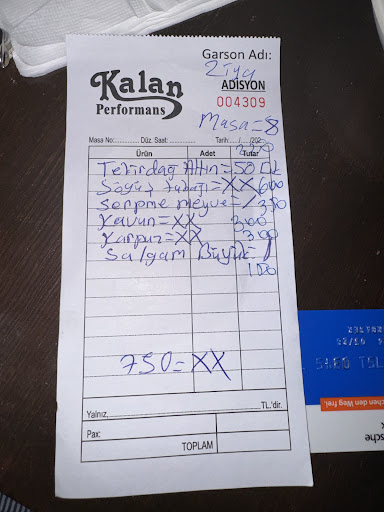 Garson Adı:
Ziya
Kalan
Performans
ADİSYON
004309
Masa=8
Masa No: Düz Saat: Tarih: / /202
Ürün Adet Tutar
Tekirdağ Altın=50
Söğüş tabağı=XX 600
Serpme meyve=/
Kavun=XX 300
Karpuz=XX 300
Şalgam Büyük=/
100
750=XX
Yalnız, TL.'dir.
Pax:
TOPLAM
chen den Weg frei.